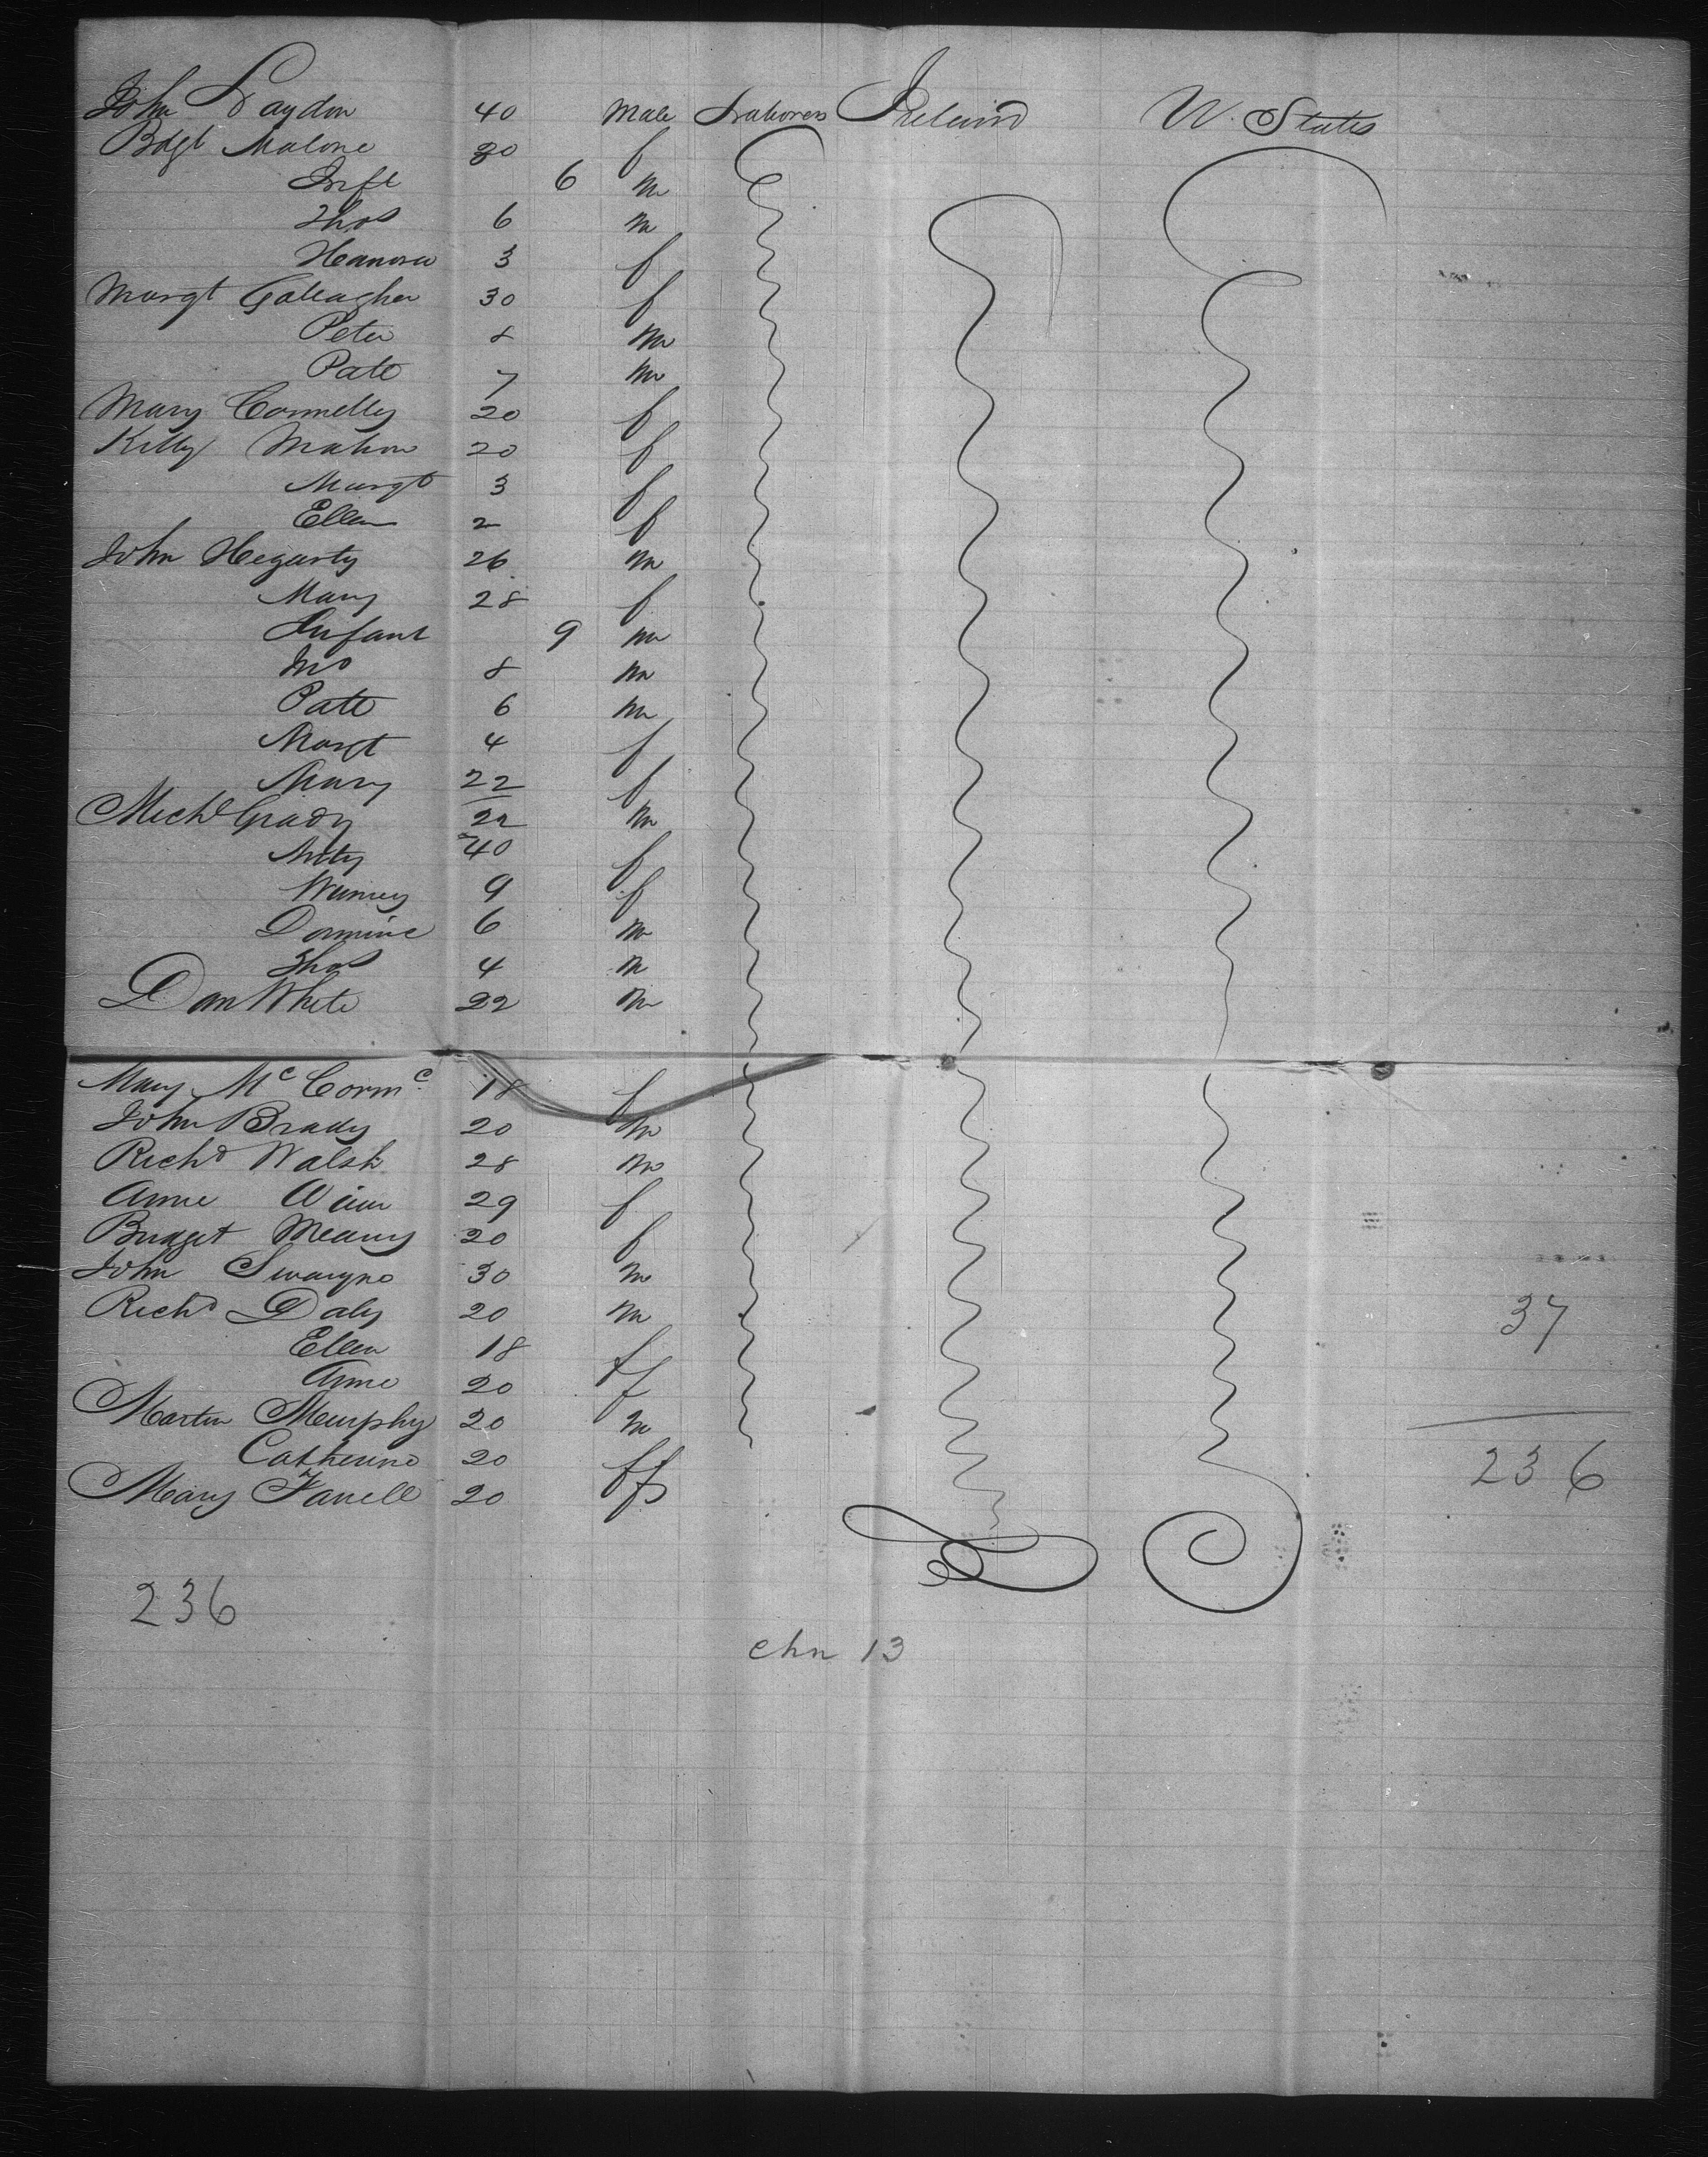 John Laydon 40 Male Laborers Ireland U. States
Bdgt Malone 30 f
Inft 6 m
Thos 6 m
Hanora 3 f
Margt Gallagher 30 f
Peter 8 m
Patt 7 m
Mary Connelly 20 f
Kitty Mahon 20 f
Margt 3 f
Ellen 2 f
John Hegarty 26 m
Mary 28 f
Infant 9 m
Jno 8 m
Patt 6 m
Margt 4 f
Mary 22 f
Michl Grady 22 m
40 f
9 f
6 m
Thos 4 m
Dan White 22 m
Mary McCormc 18 f
John Brady 20 m
Richd Walsh 28 m
Anne 29 f
Bridget Meany 20 f
John Swayne 30 m
Richd Daly 20 m 37
Ellen 18 f
Anne 20 f
Martin Murphy 20 m
Catherine 20 f 236
Mary Farrell 20 f
236
chn 13